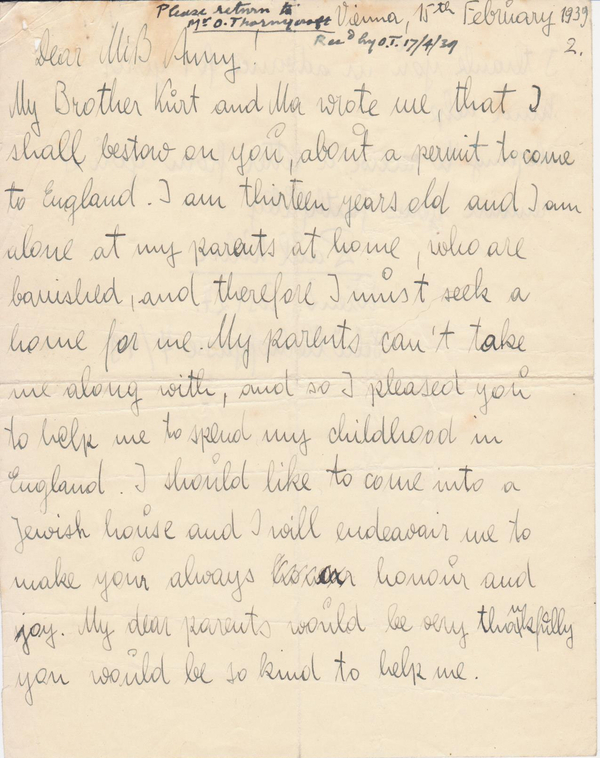 Please return to
Mr O. Thornycroft Vienna, 15th February 1939
Rec'd by O.T. 17/4/39 2.
Dear Miß Anny!
My Brother Kurt and Ma wrote me, that I
shall bestow on you, about a permit to come
to England. I am thirteen years old and I am
alone at my parents at home, who are
banished, and therefore I must seek a
home for me. My parents can't take
me along with, and so I pleased you
to help me to spend my childhood in
England. I should like to come into a
Jewish house and I will endeavair me to
make your always honour and
joy. My dear parents would be very thankfully
you would be so kind to help me.